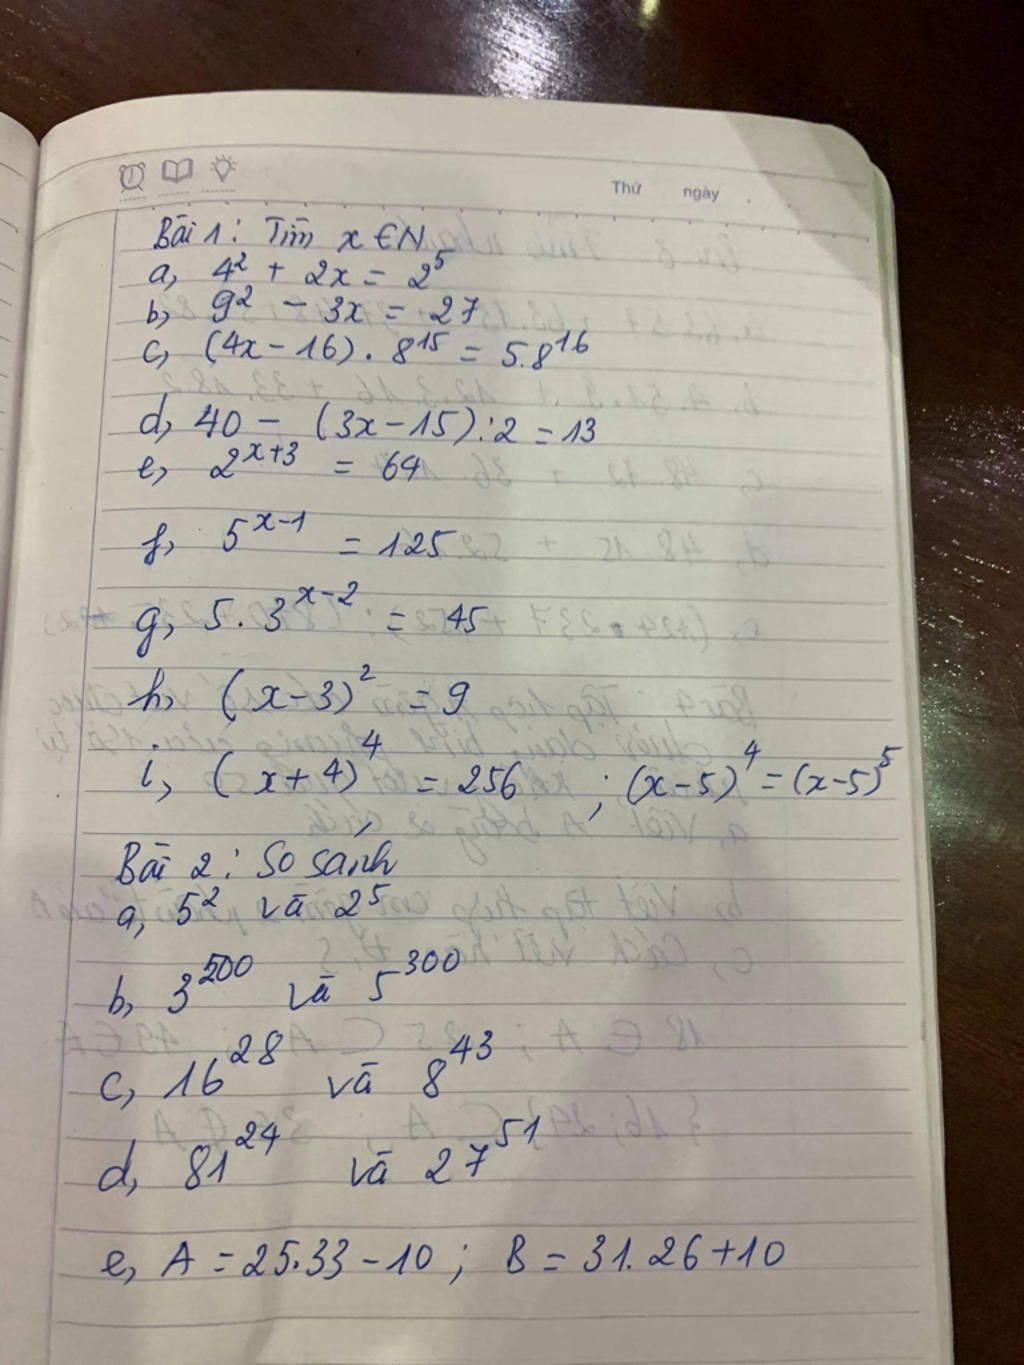 Thứ ngày
Bài 1: Tìm x ∈ N
a, 4² + 2x = 2⁵
b, 9² - 3x = 27
c, (4x - 16) . 8¹⁵ = 5.8¹⁶
d, 40 - (3x - 15) : 2 = 13
e, 2ˣ⁺³ = 64
f, 5ˣ⁻¹ = 125
g, 5 . 3ˣ⁻² = 45
h, (x - 3)² = 9
i, (x + 4)⁴ = 256 ; (x - 5)⁴ = (x - 5)⁵
Bài 2: So sánh
a, 5² và 2⁵
b, 3⁵⁰⁰ và 5³⁰⁰
c, 16²⁸ và 8⁴³
d, 81²⁴ và 27⁵¹
e, A = 25.33 - 10 ; B = 31.26 + 10